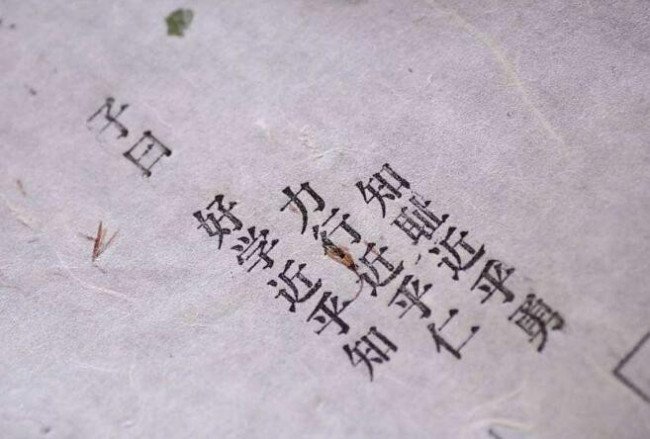 子曰
好学近乎知
力行近乎仁
知耻近乎勇